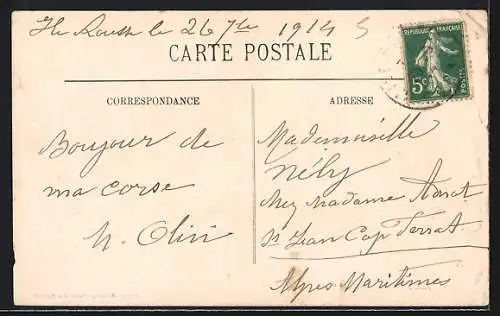 Ile Rousse le 26 7bre 1914
CARTE POSTALE
REPUBLIQUE FRANÇAISE
5c
POSTES
CORRESPONDANCE
ADRESSE
Bonjour de
ma corse
N. Olivi
Mademoiselle
Nély
chez Madame
St Jean Cap Ferrat
Alpes Maritimes